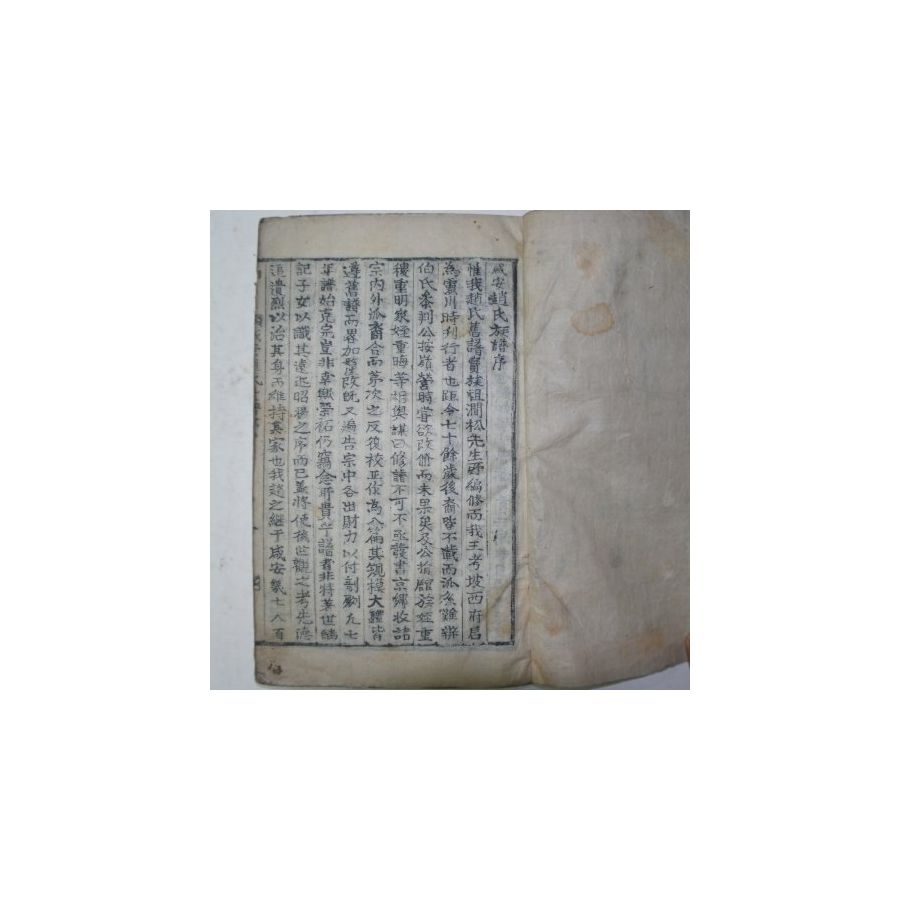 咸安趙氏族譜序
惟我趙氏舊譜實族祖澗松先生所編修而我王考坡西府君
為寧川時刊行者也距今七十餘歲後裔皆不載而派系難辨
伯氏參判公按嶺營時嘗欲改修而未果矣及公捐館族姪重
稷重明泉姪重晦等相與謀曰修譜不可不亟發書京鄉收諸
宗內外派裔合而第次之反復校正作為八篇其規模大體皆
遵舊譜而畧加整改既又遍告宗中各出財力以付剞劂凡七
年譜始克完豈非幸歟榮祏仍竊念所貴乎譜者非特著世系
記子女以識其遠近昭穆之序而已盖將使後世觀之考先德
追遺烈以治其身而維持其家也我趙之繼于咸安幾七八百